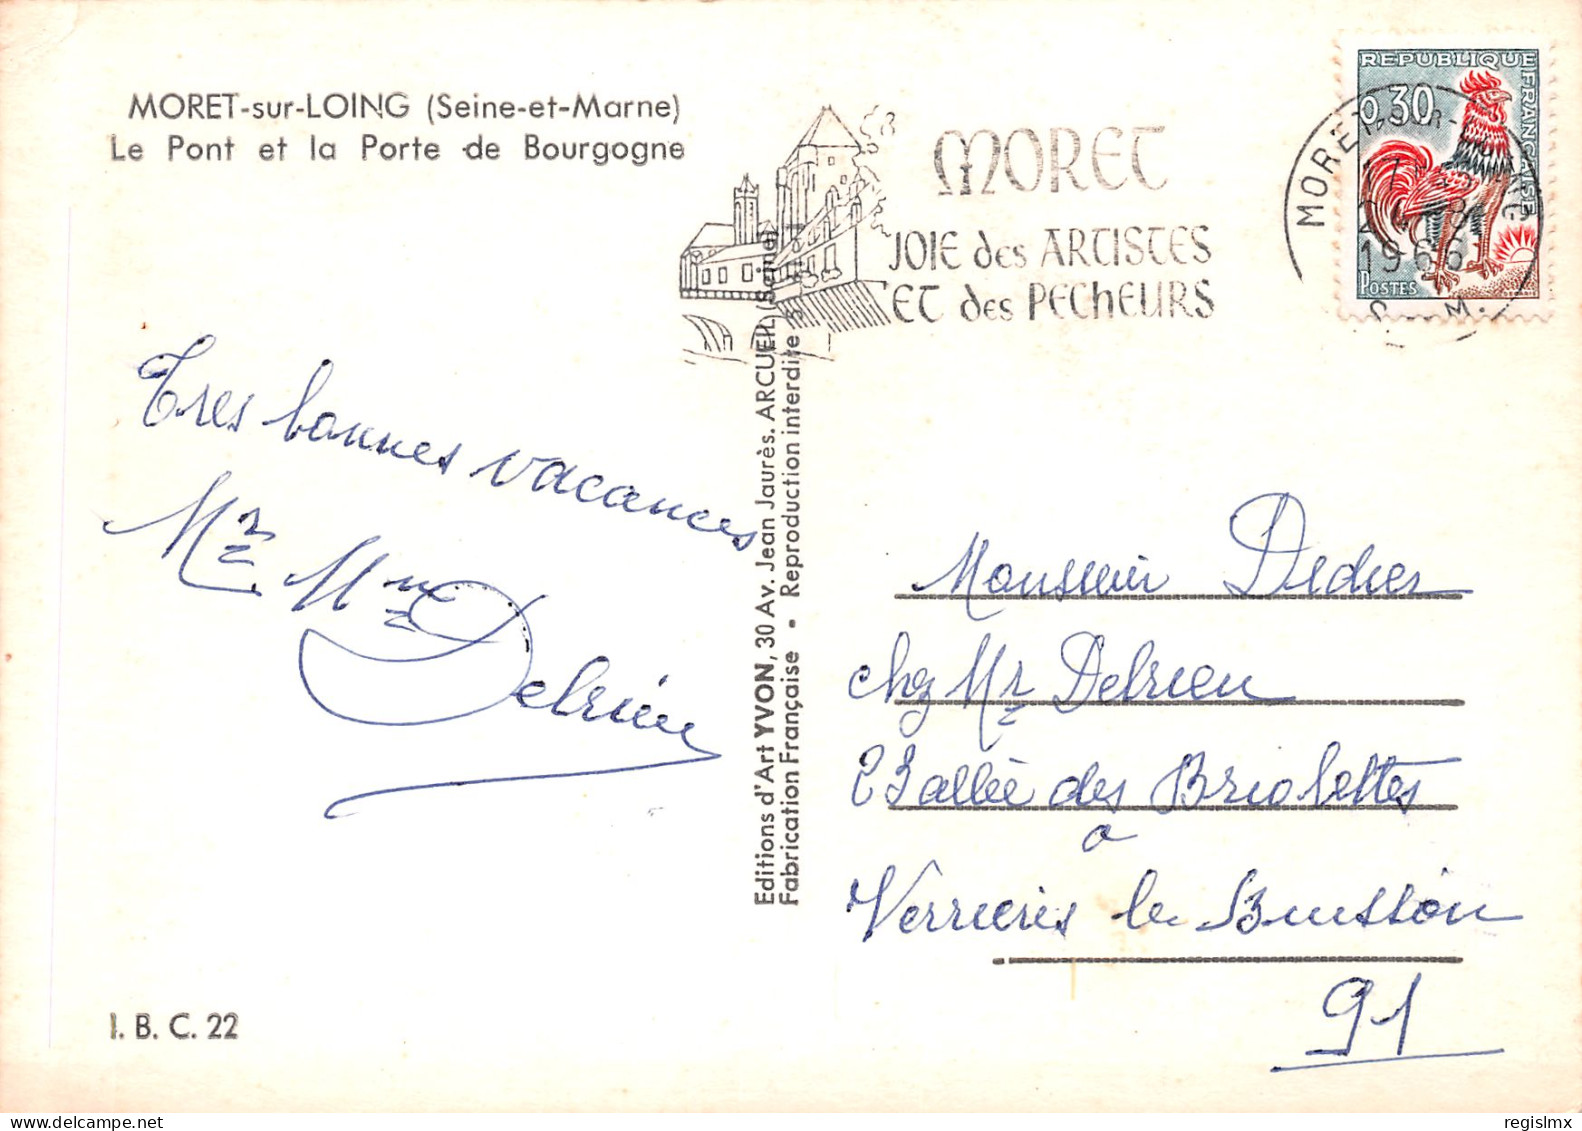 MORET-sur-LOING (Seine-et-Marne)
Le Pont et la Porte de Bourgogne
MORET
JOIE des ARTISTES
ET des PECHEURS
REPUBLIQUE FRANÇAISE
0,30
POSTES
MORET-SUR-LOING
17
1966
S. M.
Tres bonnes vacances
Mr. Mme Delrieu
Editions d'Art YVON, 30 Av. Jean Jaurès. ARCUEIL (Seine)
Fabrication Française • Reproduction interdite
Monsieur Didier
chez Mr Delrieu
23 allée des Briolettes
a
Verrieres le Buisson
91
I. B. C. 22
regislmx